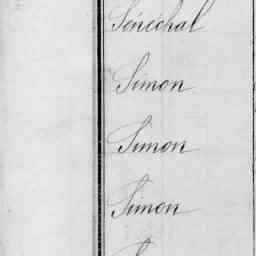 Sénéchal
Simon
Simon
Simon